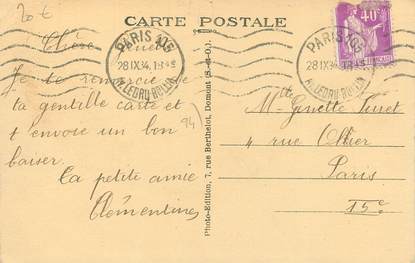 20 €
CARTE POSTALE
PARIS 105
28 IX 34. 18 45
AV. LEDRU-ROLLIN
PARIS 105
28 IX 34. 18 45
AV. LEDRU-ROLLIN
40c
Chère
Je te remercie de
ta gentille carte et
t'envoie un bon
baiser.
Ta petite amie
Clémentine
94)
Photo-Edition, 7, rue Berthelot, Domont (S.-&-O.)
Mlle Ginette Turet
4 rue Ollier
Paris
15e